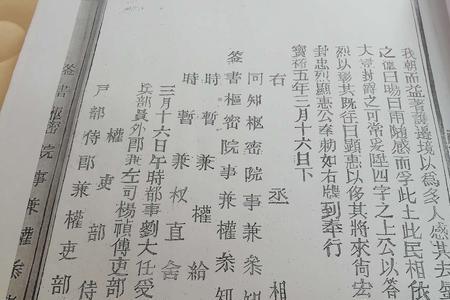 我朝而益著謂邊境以為多人感其去
之權曰暘曰雨隨感而孚此土此民相依
大音封爵之可常爰陞四字之上公以答
烈以彰其既往曰顯惠以侈其將來尚
封忠烈顯惠公奉勑如右牒到奉行
寶祐五年三月十六日下
右丞相
同知枢密院事兼叅知
簽書樞密院事兼權叅知
時暫兼權給
時暫兼權直舍
三月十六日午時都事劉大任受
兵部員外郎兼左司楊禎傅吏部
權吏部侍
戶部侍郎兼權吏部
簽書樞密院事兼權叅